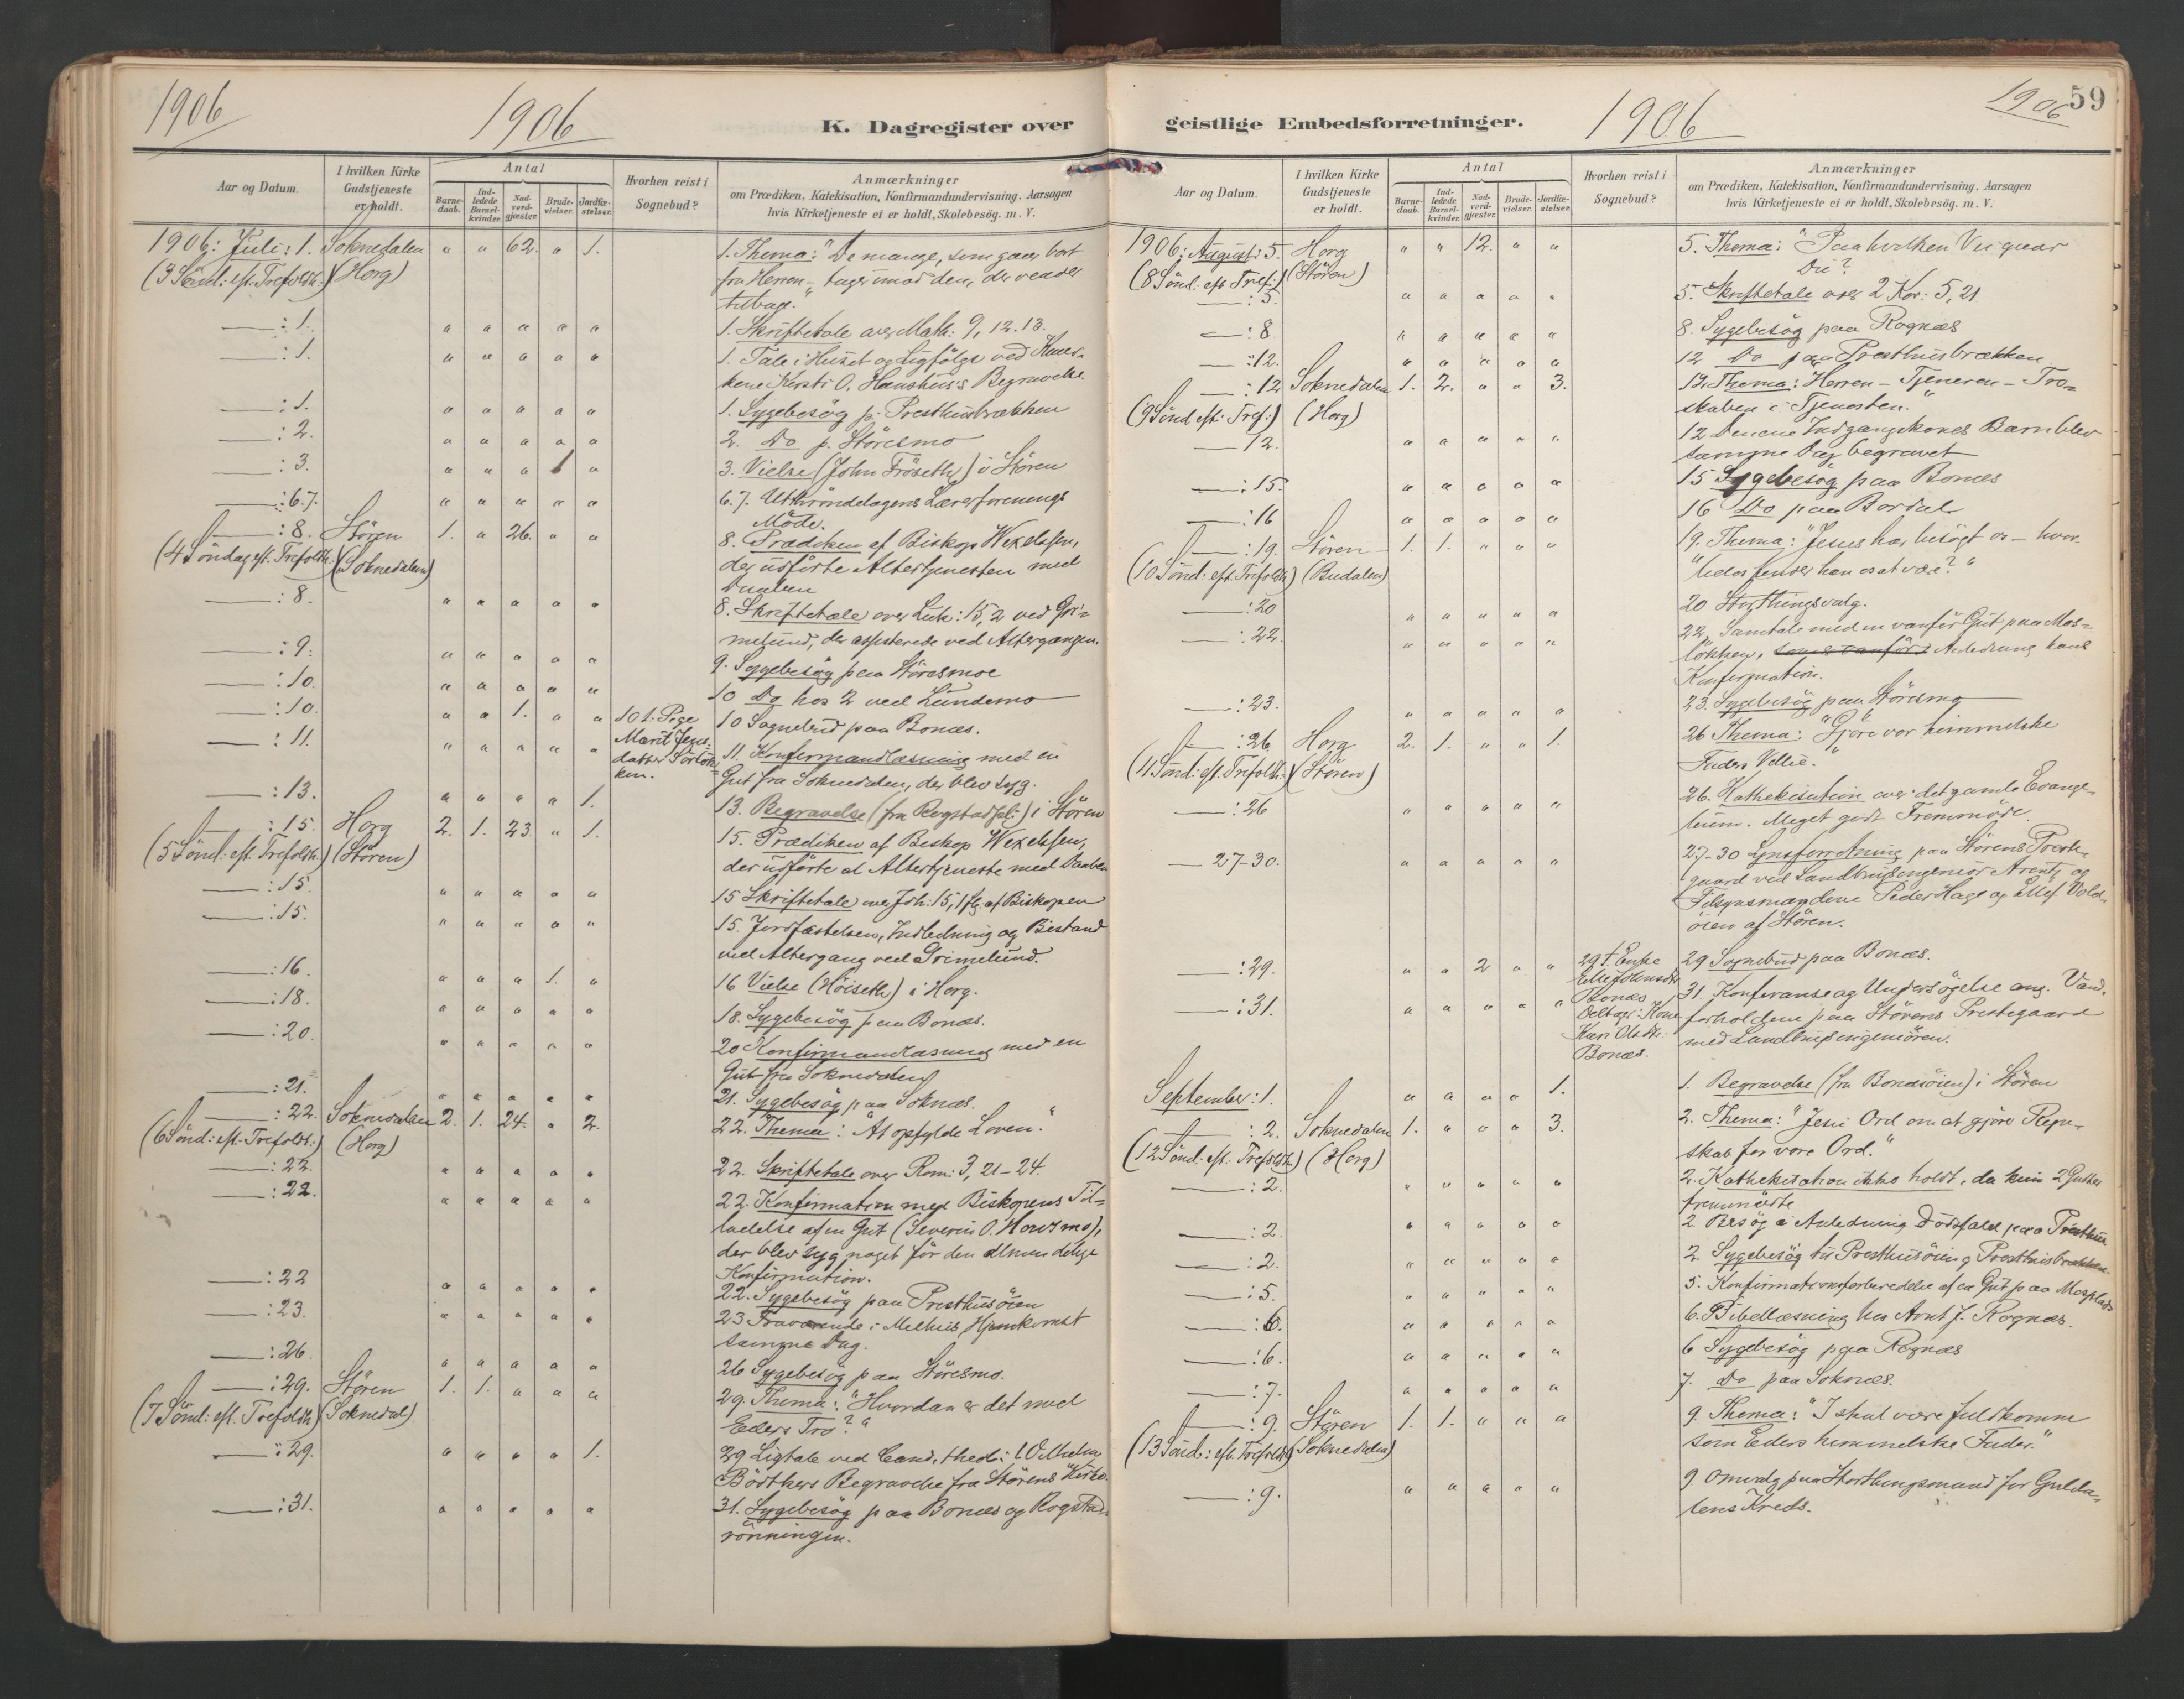 1906
1906
K. Dagregister over
Aar og Datum.
I hvilken Kirke Gudstjeneste er holdt.
Antal
Barnedaab.
Indledede Barselkvinder.
Nadverdgjæster.
Brudevielser.
Jordfæstelser.
Hvorhen reist i Sognebud?
Anmærkninger
om Prædiken, Katekisation, Konfirmandundervisning. Aarsagen
hvis Kirketjeneste ei er holdt, Skolebesøg. m. V.
1906: Juli: 1. Soknedalen " " 62. " 1. 1. Thema: "De mange, som gaar bort
(3 Sønd: eft. Trefoldh.) (Horg) fra Herren - tager imod den, der vender
tilbage."
—: 1. " " " " " 1. Skriftetale over Math: 9, 12.13.
—: 1. " " " " " 1. Tale i Huset og Ligfølge ved
Kersti O. Haushus's Begravelse.
—: 1. " " " " " 1. Sygebesøg p. Presthusbrækken
—: 2. " " " " " 2. Do p. Støresmo
—: 3. " " " 1 " 3. Vielse (John Frøseth) i Støren
—: 6.7. " " " " " 6.7. Uttrøndelagens Lærerforenings
Møde.
—: 8. Støren 1. " 26. " " 8. Prædiken af Biskop Wexelsen,
(4 Søndag eft. Trefoldh.) (Soknedalen) der udførte Altertjenesten med
Daaben
—: 8. " " " " " 8. Skriftetale over Luk: 15, 2 ved Gri-
melund, der assisterede ved Altergangen.
—: 9. " " " " " 9. Sygebesøg paa Støresmoe
—: 10. " " " " " 10 Do hos 2 ved Lundemo
—: 10. " " 1. " " 10 1. Pige 10 Sognebud paa Bonæs.
Marit Jens-
datter Sørløk-
ken.
—: 11. " " " " " 11. Konfirmandlæsning med en
Gut fra Soknedalen, der blev syg.
—: 13. " " " " 1. 13. Begravelse (fra Rogstadpl:) i Støren
—: 15. Horg 2. 1. 23. " 1. 15. Prædiken af Biskop Wexelsen,
(5 Sønd: eft. Trefoldh.) (Støren) der udførte al Altertjeneste med Daaben
—: 15. " " " " " 15 Skriftetale over Joh: 15, 1 flg. af Biskopen
—: 15. " " " " " 15. Jordfæstelsen, Indledning og Bistand
ved Altergang ved Grimelund.
—: 16. " " " 1. " 16 Vielse (Høiseth) i Horg.
—: 18. " " " " " 18. Sygebesøg paa Bonæs.
—: 20. " " " " " 20 Konfirmandlæsning med en
Gut fra Soknedalen
—: 21. " " " " " 21. Sygebesøg paa Soknæs.
—: 22. Soknedalen 2. 1. 24. " 2. 22. Thema: "At opfylde Loven."
(6 Sønd: eft. Trefoldh:) (Horg)
—: 22. " " " " " 22. Skriftetale over Rom: 3, 21-24.
—: 22. " " " " " 22. Konfirmation med Biskopens Til-
ladelse af en Gut (Severin O.
der blev syg noget før den almindelige
Konfirmation.
—: 22 " " " " " 22. Sygebesøg paa Presthusøien
—: 23. " " " " " 23 Fraværende i Melhus Hjemkomst
samme Dag.
—: 26. " " " " " 26 Sygebesøg paa Støresmo.
—: 29. Støren 1. 1. " " " 29. Thema: "Hvordan er det med
(7 Sønd: eft. Trefoldh.) (Soknedal) Eders Tro?"
—: 29. " " " " 1. 29 Ligtale ved Cand. theol: Wilhelm
Bödtkers Begravelse fra Størens Kirke.
—: 31. " " " " " 31. Sygebesøg paa Bonæs og Rogstad-
rønningen.
1906
1906
59
geistlige Embedsforretninger.
Aar og Datum.
I hvilken Kirke Gudstjeneste er holdt.
Antal
Barnedaab.
Indledede Barselkvinder.
Nadverdgjæster.
Brudevielser.
Jordfæstelser.
Hvorhen reist i Sognebud?
Anmærkninger
om Prædiken, Katekisation, Konfirmandundervisning. Aarsagen
hvis Kirketjeneste ei er holdt, Skolebesøg. m. V.
1906: August: 5. Horg " " 12. " " 5. Thema: "Paa hvilken Vei gaar
(8 Sønd. eft Tref:) (Støren) Du?
—: 5. " " " " " 5. Skriftetale over 2 Kor: 5, 21
—: 8. " " " " " 8. Sygebesøg paa Rognæs
—: 12. " " " " " 12 Do paa Presthusbrækken
—: 12 Soknedalen 1. 2. " " 3. 12. Thema: Herren - Tjeneren - Tro-
(9 Sønd eft. Tref:) (Horg) skaben i Tjenesten."
—12. " " " " " 12 Denene Indgangskones Barn blev
samme Dag begravet
—: 15. " " " " " 15 Sygebesøg paa Bonæs
—: 16 " " " " " 16 Do paa Bordal
—: 19. Støren 1. 1. " " " 19. Thema: "Jesus har besøgt os - hvor-
(10 Sønd: eft. Trefoldh) (Budalen) ledes finder han os at være?"
—: 20 " " " " " 20 Storthingsvalg.
—: 22. " " " " " 22. Samtale med en vanför Gut paa Mos-
løkken, Anledning hans
Konfirmation.
—: 23. " " " " " 23. Sygebesøg paa Støresmo
—: 26. Horg 2. 1. " " 1. 26 Thema: "Gjøre vor himmelske
(11 Sønd: eft. Trefoldh.) (Støren) Faders Villie."
—: 26 " " " " " 26. Kathekisation over det gamle Evange-
lium. Meget godt Fremmøde.
— 27-30. " " " " " 27-30 Synsforretning paa Størens Preste-
gaard ved Landbrugsingeniør Arentz og
Peder Hage og Ellef Vold-
øien af Støren.
—: 29. " " 2 " " 29 1. Enke 29 Sognebud paa Bonæs.
Bonæs
Deltager: Kone
Kari Olsdtr.
Bonæs.
—: 31. " " " " " 31. Konferanse og Undersøgelse ang. Vand-
forholdene paa Størens Prestegaard
med Landbrugsingeniøren.
September: 1. " " " " 1. 1. Begravelse (fra Bonæsøien) i Støren
—: 2. Soknedalen 1. " " " 3. 2. Thema: "Jesu Ord om at gjøre Regn-
(12 Sønd: eft. Trefoldh) (Horg) skab for vore Ord."
—: 2. " " " " " 2. Kathekisation ikke holdt, da kun 2 Gutter
fremmødte
—: 2. " " " " " 2 Besøg i Anledning Dødsfald paa Presthus
—: 2. " " " " " 2. Sygebesøg til Presthusøien og Presthusbrækken.
—: 5. " " " " " 5. Konfirmationsforberedelse af en Gut paa
—: 6. " " " " " 6. Bibellæsning hos Arnt J. Rognæs.
—: 6. " " " " " 6 Sygebesøg paa Rognæs
—: 7. " " " " " 7. Do paa Soknæs.
—: 9. Støren 1. 1. " " " 9. Thema: "I skal være fuldkomne
(13 Sønd.: eft. Trefoldh) (Soknedalen) som Eders himmelske Fader."
—: 9. " " " " " 9 Omvalg paa Storthingsmand for Gulda-
lens Kreds.